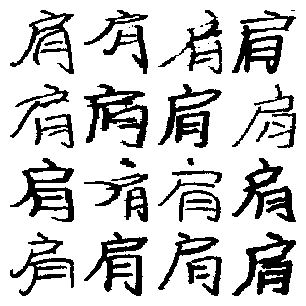 肩肩肩肩
肩肩肩肩
肩肩肩肩
肩肩肩肩